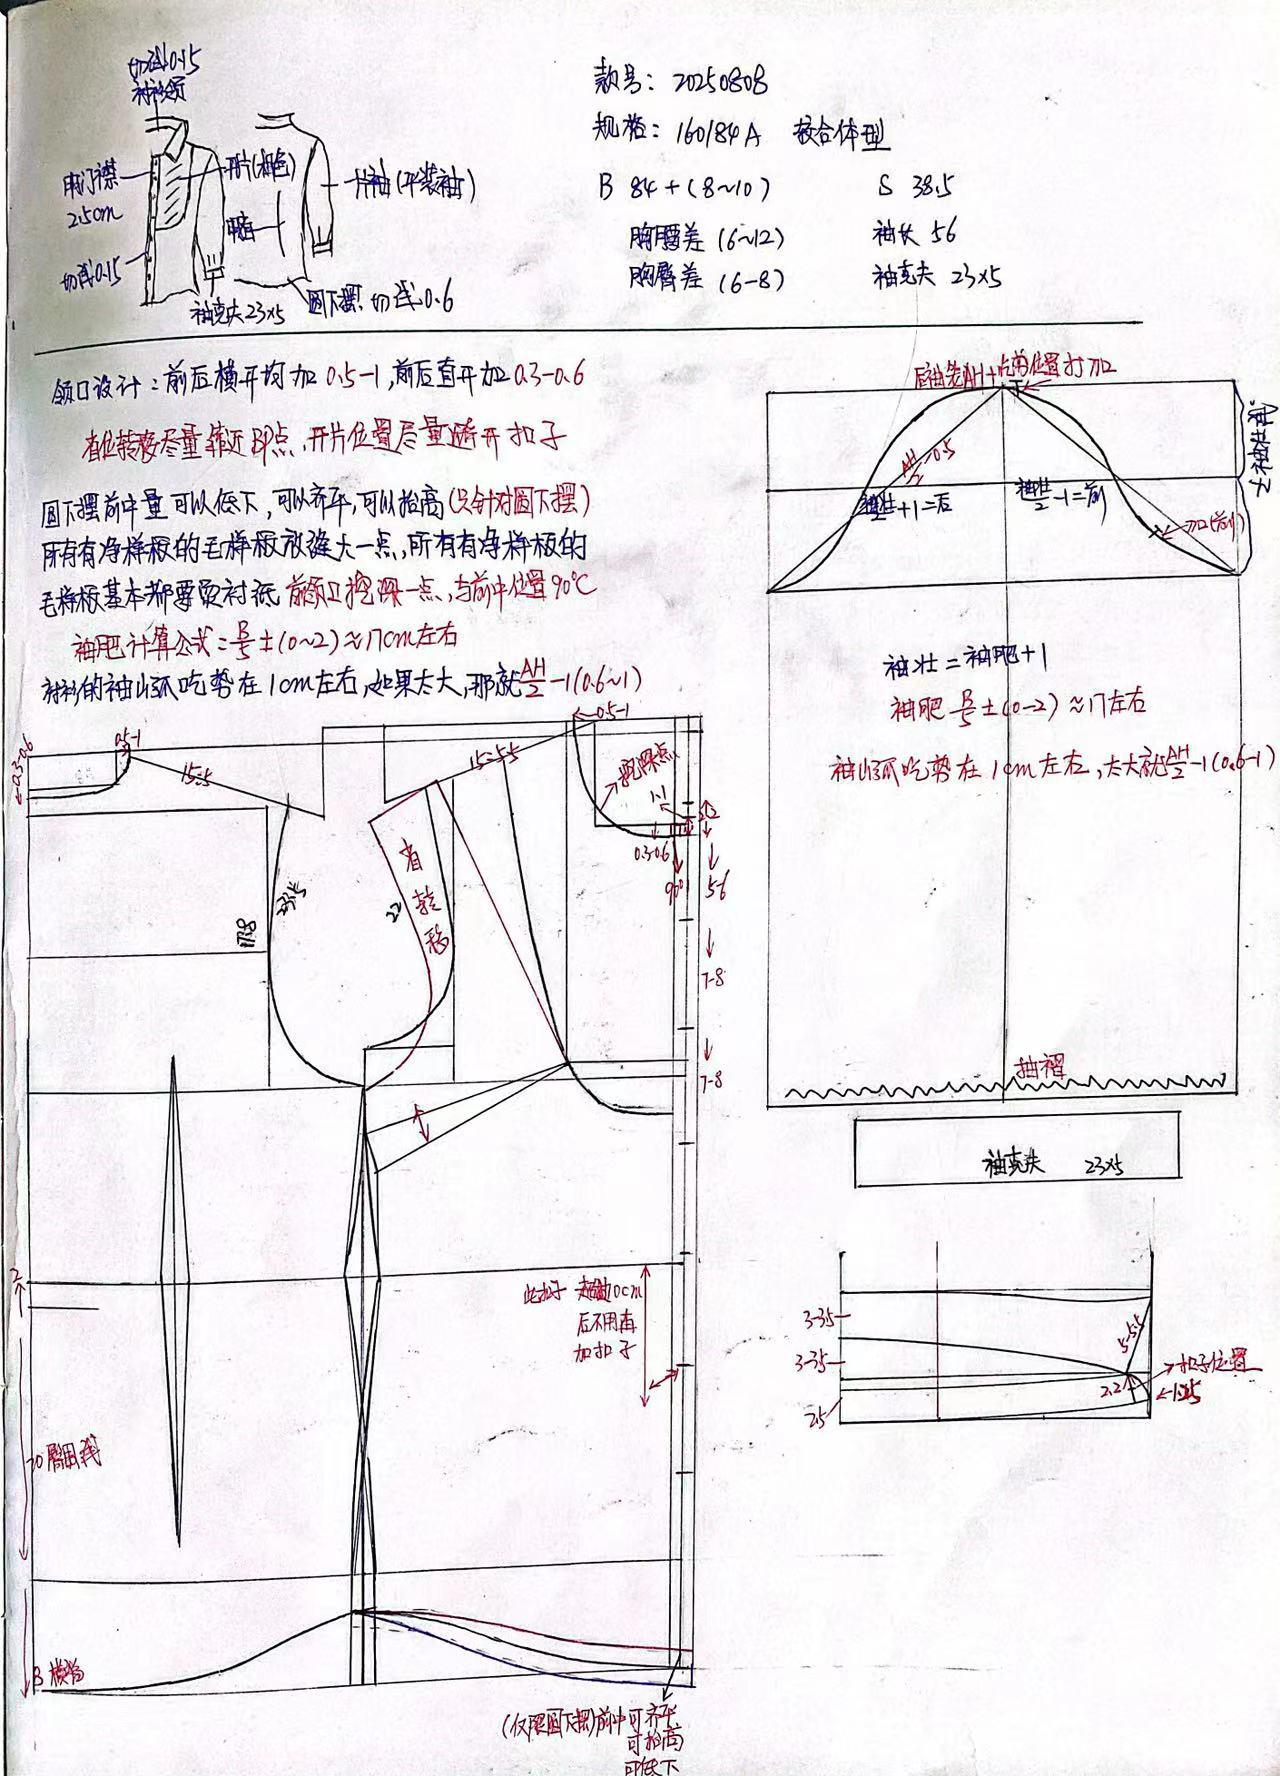 切线0.15
衬衫领
款号：20250808
规格：160/84A 较合体型
明门襟
2.5cm
开片(撞色)
一片袖(平装袖)
B 84+(8~10)
S 38.5
胸腰差 (6~12)
袖长 56
切线0.15
胸臀差 (6-8)
袖克夫 23×5
袖克夫23×5
圆下摆 切线0.6
领口设计：前后横开均加0.5-1,前后直开加0.3-0.6
省位转移尽量靠近BP点,开片位置尽量避开扣子
圆下摆前中量可以低下,可以齐平,可以抬高(只针对圆下摆)
所有有净样板的毛样板放缝大一点,所有有净样板的
毛样板基本都要烫衬纸 前领口挖深一点,与前中位置90°C
袖肥计算公式=B/5±(0~2)≈17cm左右
衬衫的袖山弧吃势在1cm左右,如果太大,那就AH/2-1(0.6~1)
AH/2-0.5
+1=后
-1=前
刀口(前)
袖壮=袖肥+1
袖肥 B/5±(0-2)≈17左右
袖山弧吃势在1cm左右,太大就AH/2-1(0.6-1)
0.5-1
0.5-1
0.3-0.6
15:5.5
15:5.5
挖深点
1.1
2.2
0.3-0.6
90°
5-6
省
转
移
22
23.5
17.8
7-8
7-8
抽褶
袖克夫 23×5
2
10cm
后不用再
加扣子
3-3.5
3-3.5
2.5
5-5.5
扣子位置
2.2
臀围线
(仅限圆下摆)前中可齐平
可抬高
可低下